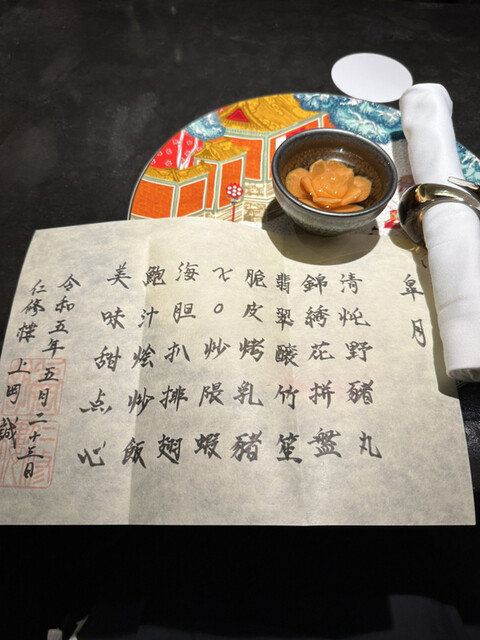 皐月
清炖野豬丸
錦綉花拼盤
翡翠釀竹笙
脆皮烤乳豬
XO炒隈蝦
海胆扒排翅
鮑汁燴炒飯
美味甜点心
令和五年五月二十三日
仁修樓 上岡誠